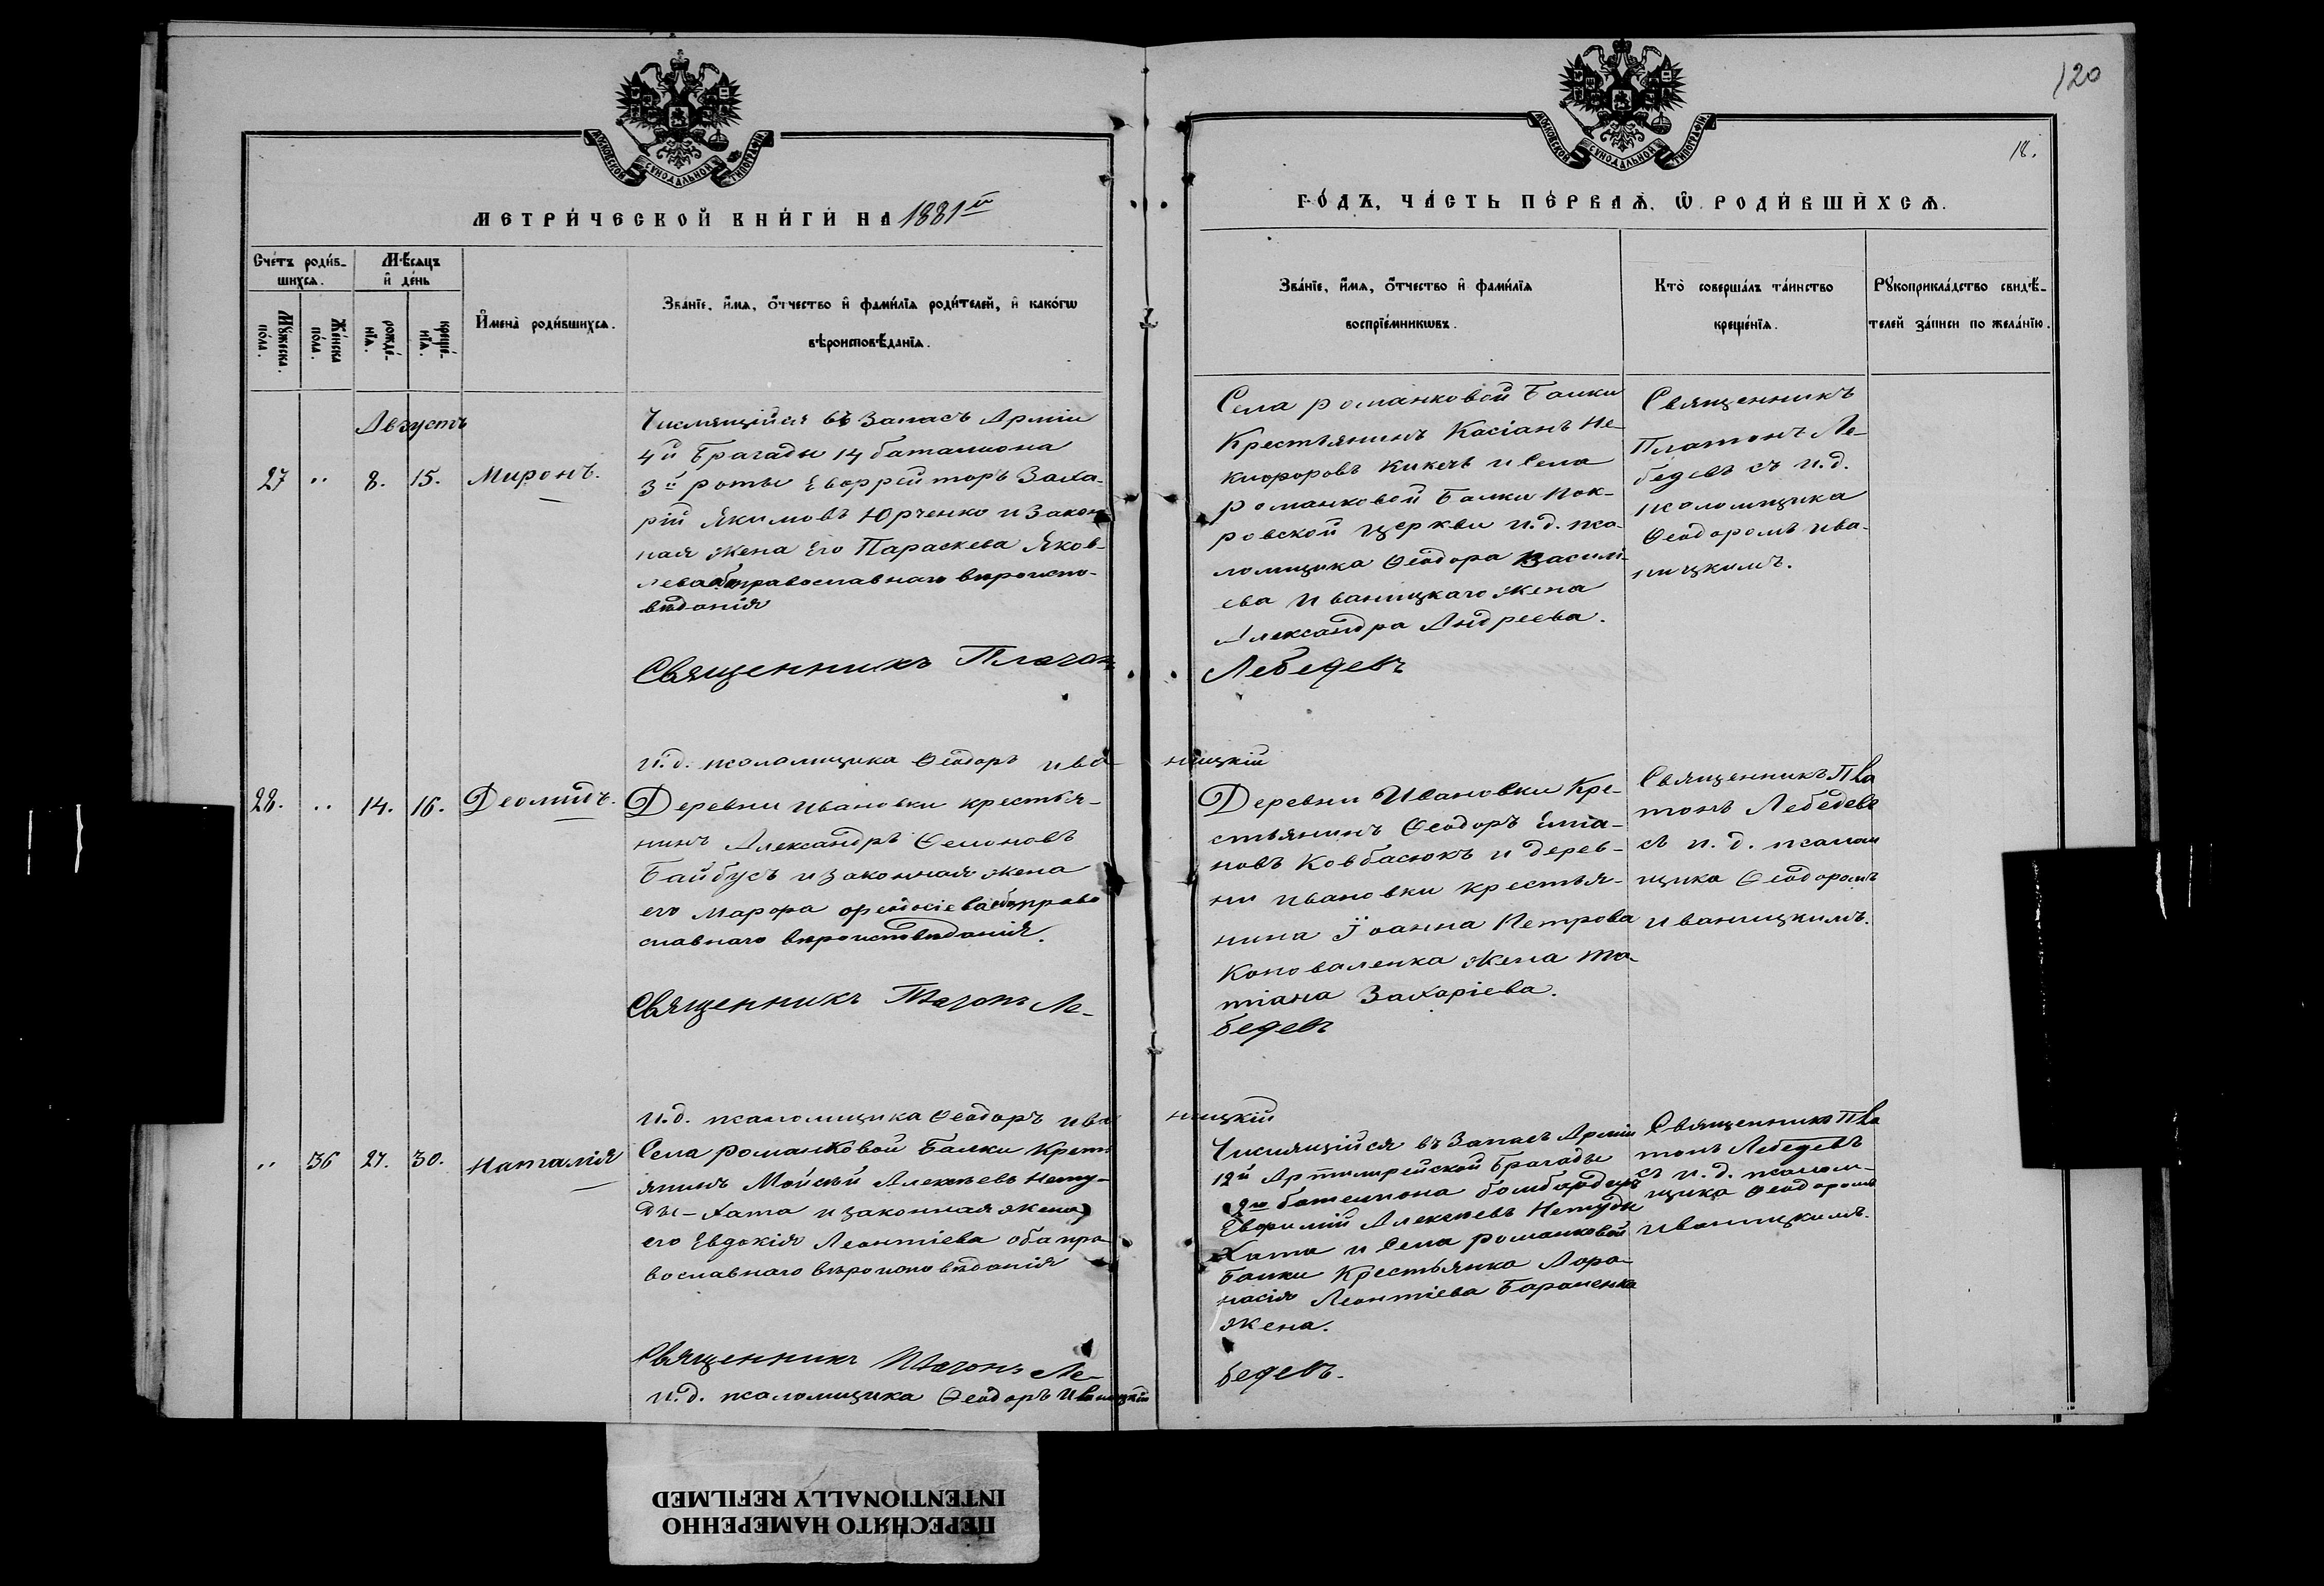 120
18.
МОСКОВСКОЙ СѴНОДАЛЬНОЙ ТИПОГРАФІИ
МОСКОВСКОЙ СѴНОДАЛЬНОЙ ТИПОГРАФІИ
МЕТРИ́ЧЕСКОЙ КНИ́ГИ НА 1881й
ГО́ДЪ, ЧА́СТЬ ПЕ́РВАѦ, Ѡ РОДИ́ВШИХСѦ.
Сче́тъ роди́в-
шихсѧ.
Мѣ́сѧцъ
и҆ де́нь
Мꙋ́жеска по́ла.
Же́нска по́ла.
рожде́-нїѧ.
креще́-нїѧ.
И҆мена̀ роди́вшихсѧ.
Зва́нїе, и҆́мѧ, о҆́тчество и҆ фами́лїѧ роди́телей, и҆ како́гѡ
вѣроисповѣ́данїѧ.
Зва́нїе, и҆́мѧ, о҆́тчество и҆ фами́лїѧ
воспрїе́мникѡвъ.
Кто̀ соверша́лъ та́инство
креще́нїѧ.
Рꙋкоприкла́дство свидѣ́-
телей за́писи по жела́нїю.
Августъ
27 " 8. 15. Миронъ.
Числящійся въ Запасѣ Арміи
4й Брагады 14 баталиона
3й роты Ефрейторъ Заха-
рій Якимовъ Юрченко и закон
ная жена его Параскева Яков-
лева оба православнаго вѣроиспо-
вѣданія
Села романковой Балки
Крестьянинъ Касіанъ Не-
кифоровъ Кикечъ и Села
романковой Балки Пок-
ровской церкви и.д. пса-
ломщика Ѳеодора Василі-
ева Иваницкаго жена
Александра Андреева.
Священникъ
Платонъ Ле-
бедевъ съ и.д.
псаломщика
Ѳеодоромъ Ива-
ницкимъ.
Священникъ Платонъ Лебедевъ
и.д. псаломщика Ѳеодоръ Иваницкій
28. " 14. 16. Деомидъ.
Деревни Ивановки крестья-
нинъ Александръ Семоновъ
Байбусъ и законная жена
его Марфа оба право
славнаго вѣроисповѣданія.
Деревни Ивановки Кре-
стьянинъ Ѳеодоръ Еміа-
новъ Ковбасюкъ и дерев-
ни Ивановки крестья-
нина Іоанна Петрова
Коноваленка жена Та-
тіана Захаріева.
Священникъ Пла
тонъ Лебедевъ
съ и.д. псалом
щика Ѳеодоромъ
Иваницкимъ.
Священникъ Платонъ Ле-
бедевъ
и.д. псаломщика Ѳеодоръ Иваницкій
" 36 27. 30. Наталія
Села романковой Балки Крест
янинъ Мойсей Алексѣевъ Нету-
ды-Хата и законная жена
его Евдокія Леонтіева оба пра-
вославнаго вѣроисповѣданія
Числящійся въ Запасѣ Арміи
12й Артилирейской Брагады
2го баталиона бомбардеръ
Ефимій Алексѣевъ Нетуды
Хата и Села романковой
Балки Крестьянка
Леонтіева Бараненка
жена.
Священникъ Пла
тонъ Лебедевъ
съ и.д. псалом-
щика Ѳеодоромъ
Иваницкимъ.
Священникъ Платонъ Ле-
бедевъ.
и.д. псаломщика Ѳеодоръ Иваницкій
ПЕРЕСНЯТО НАМЕРЕННО
INTENTIONALLY REFILMED